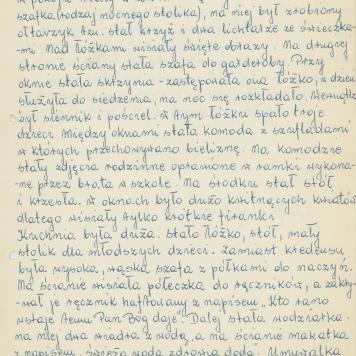 szafka (rodzaj nocnego stolika), na niej był zrobiony
ołtarzyk tzn. stał krzyż i dwa lichtarze ze świeczka-
-mi Nad łóżkami wisiały święte obrazy. Na drugiej
stronie ściany stała szafa do garderoby. Przy
oknie stała skrzynia - zastępowała ona łóżko, w dzień
służyła do siedzenia, na noc się rozkładało. Wewnątrz
był siennik i pościel. w tym łóżku spało troje
dzieci Między oknami stała komoda z szufladami
w których przechowywano bieliznę. Na komodzie
stały zdjęcia rodzinne oprawione w ramki wykona-
ne przez brata w szkole. Na środku stał stół
i krzesła. w oknach było dużo kwitnących kwiatów
dlatego wisiały tylko krótkie firanki
Kuchnia była duża. stało łóżko, stół, mały
stolik dla młodszych dzieci. Zamiast kredensu
była wysoka, wąska szafa z półkami do naczyń.
Na ścianie wisiała półeczka do ręczników, a zakry-
-wał je ręcznik haftowany z napisem „Kto rano
wstaje temu Pan Bóg daje". Dalej stała wodziarka-
-na niej dwa wiadra z wodą, a na ścianie makatka
z napisem, świeża woda zdrowia doda. Umywalka